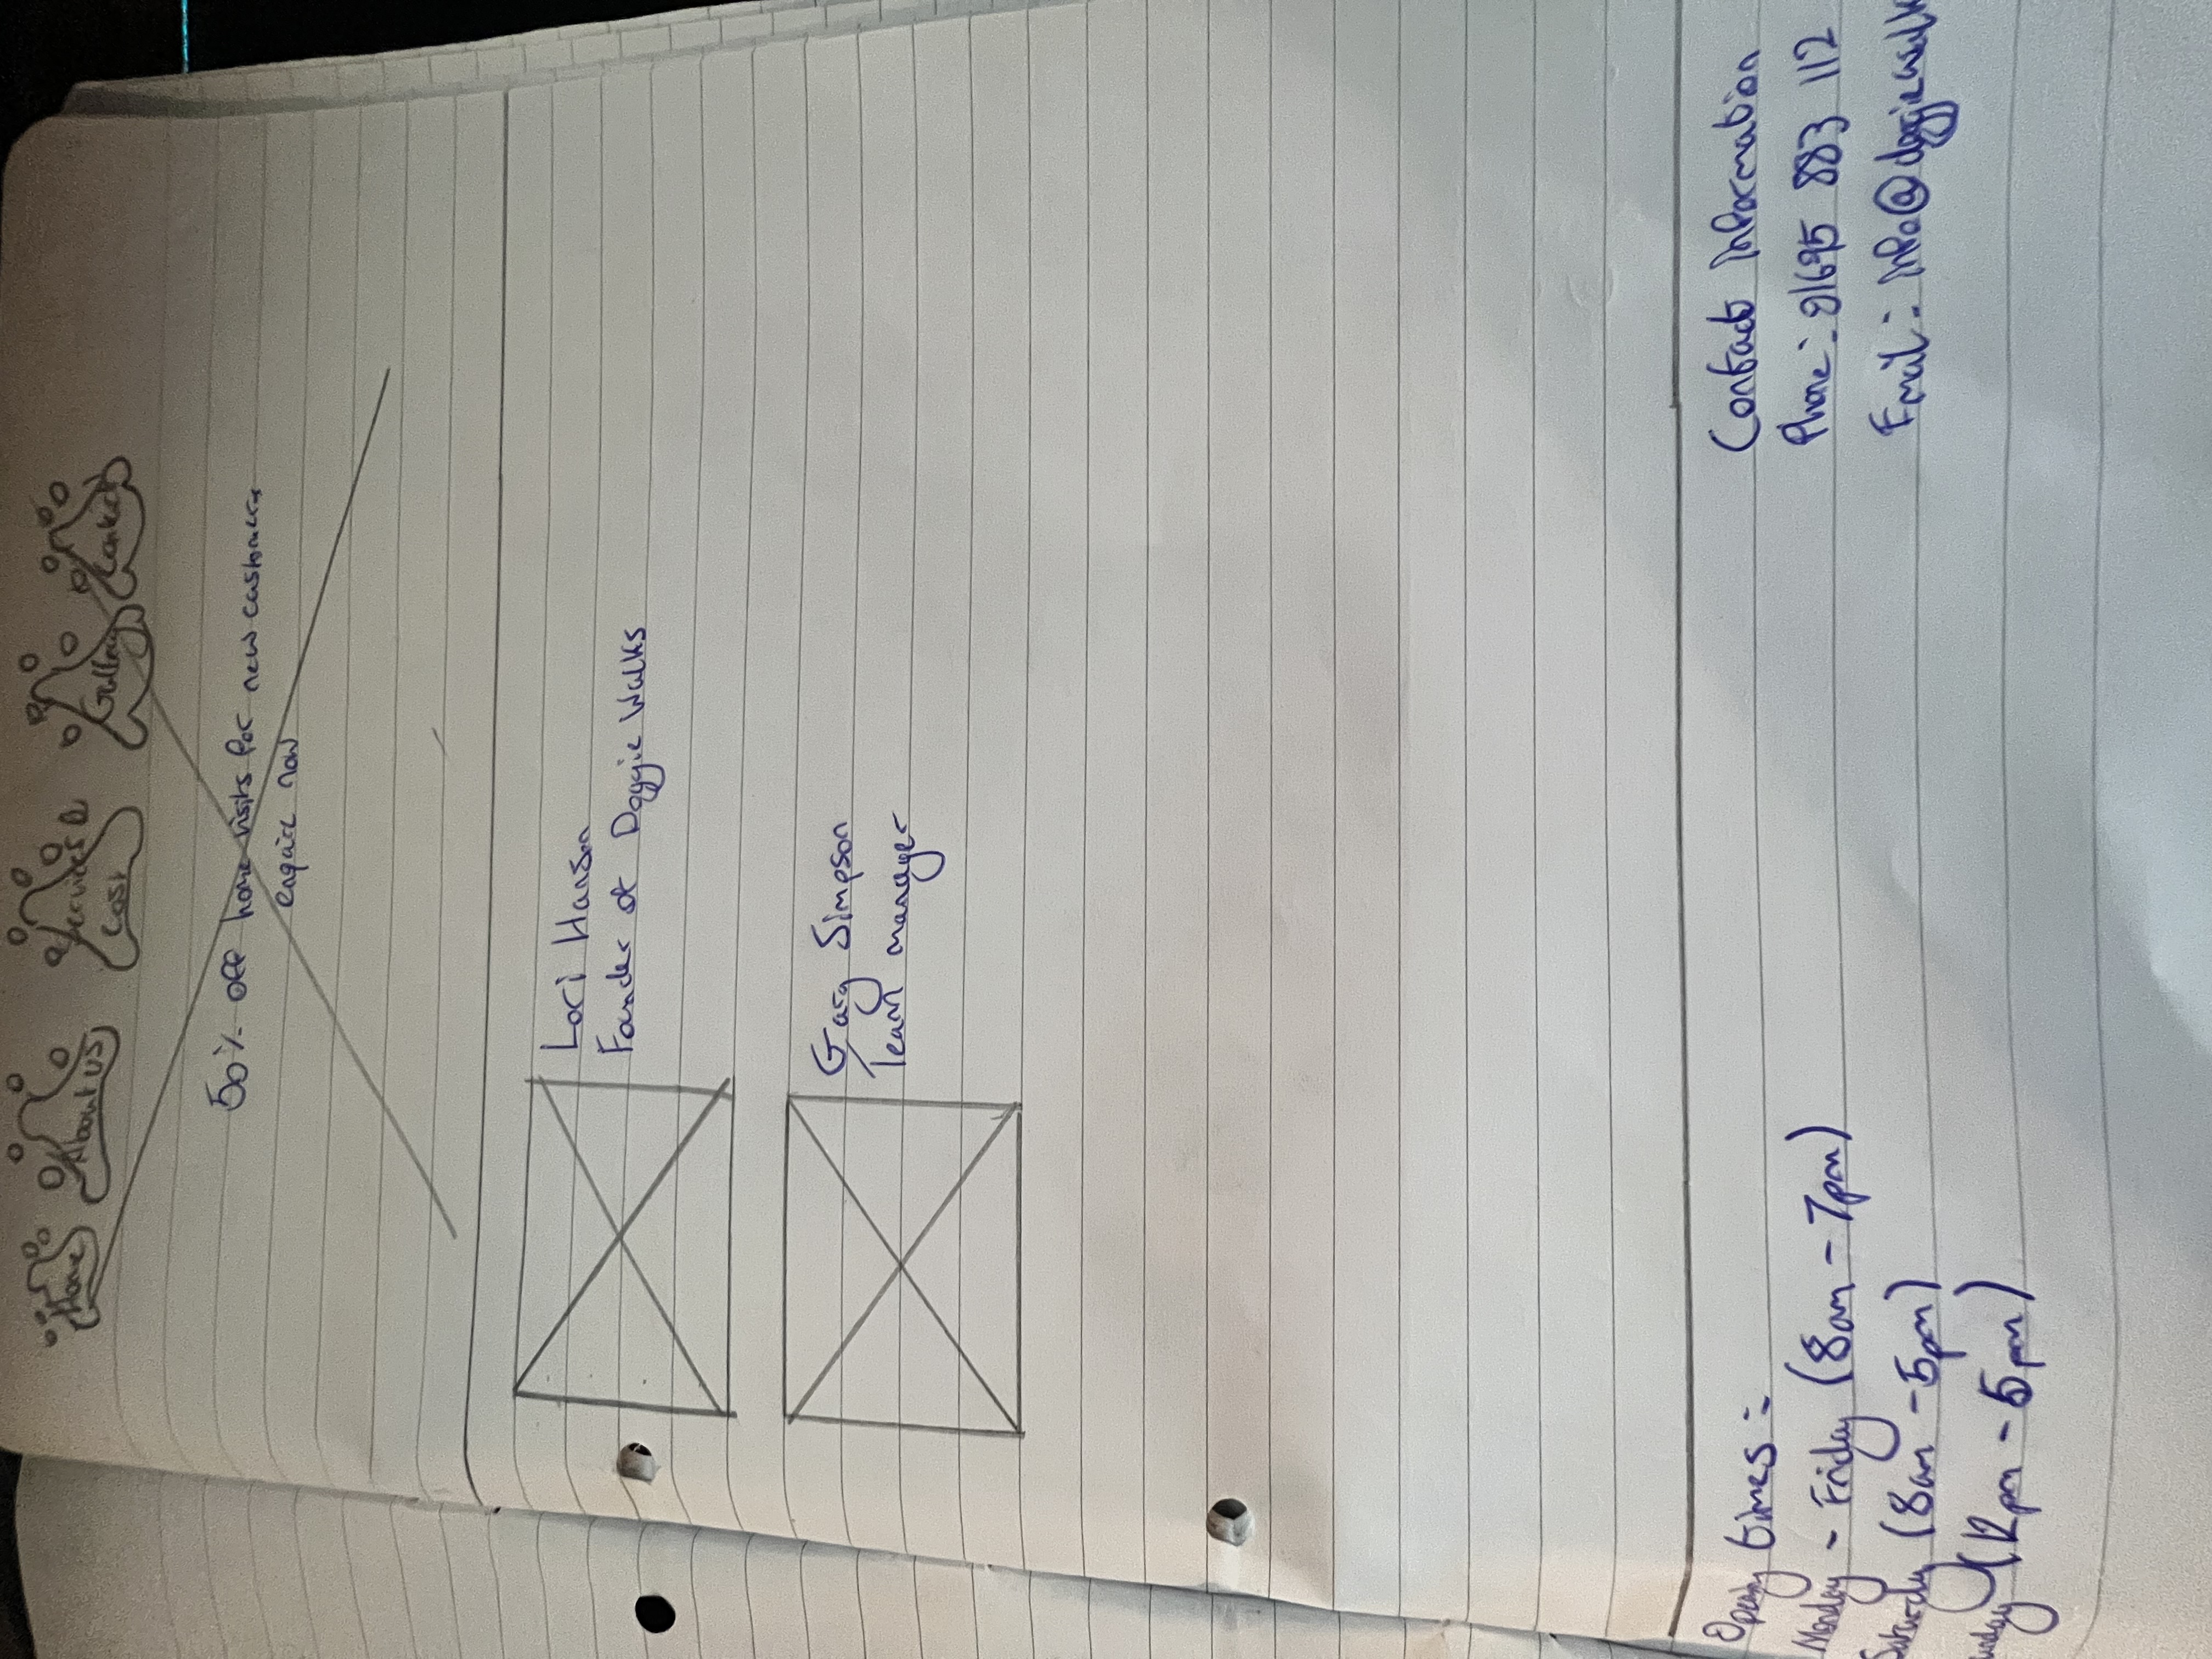 Home
About us
Services &
Cost
Gallery
Contact
50% off home visits for new customers
enquire now
Lori Hanson
Founder of Doggie Walks
Gary Simpson
Team manager
Opening times:
Monday - Friday (8am - 7pm)
Saturday (8am - 5pm)
unday (12pm - 5pm)
Contact information
Phone: 01695 883 112
Email: info@doggiewalk